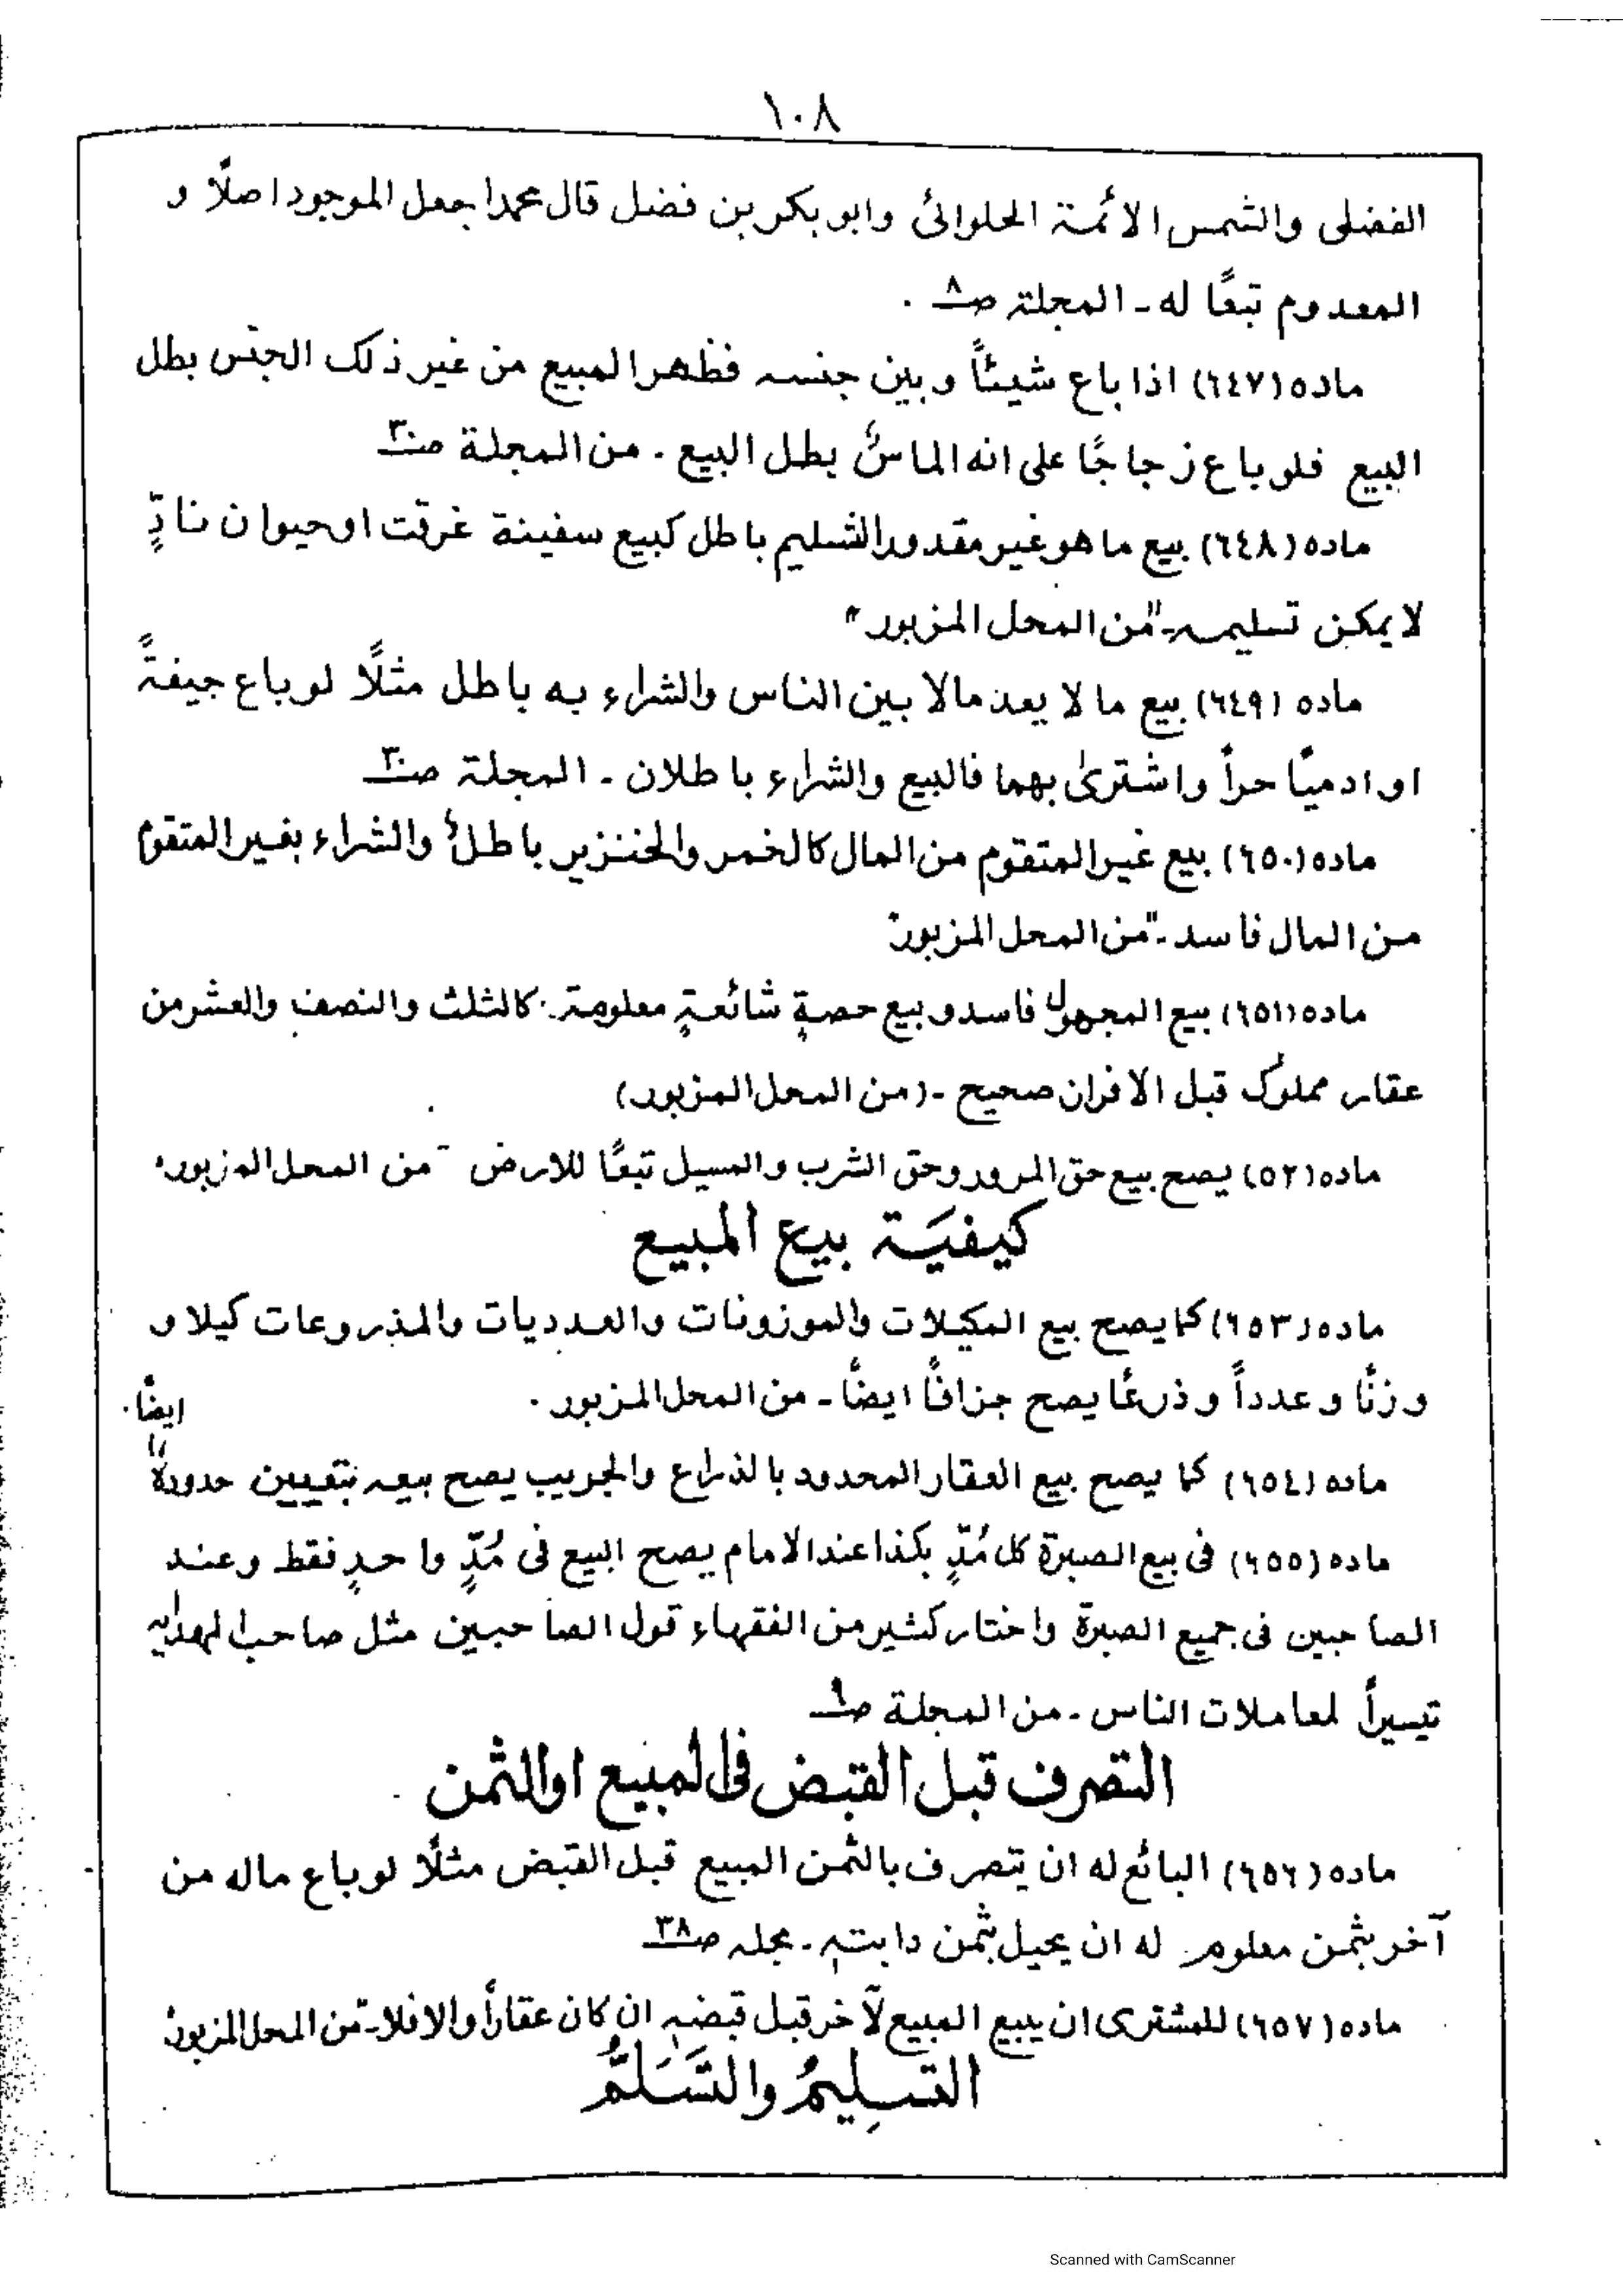 ١٠٨
الفضلى والشمس الائمة الحلوائى وابو بكر بن فضل قال محمدا جعل الموجود اصلًا و
المعدوم تبعًا له ـ المجلة صـ٨ .
ماده (٦٤٧) اذا باع شيئاً و بين جنسه فظهر المبيع من غير ذلك الجنس بطل
البيع فلو باع زجاجًا على انه الماسٌ بطل البيع ـ من المجلة صـ٣٠
ماده (٦٤٨) بيع ما هو غير مقدور التسليم باطل كبيع سفينة غرقت او حيوان نادٍّ
لا يمكن تسليمه ـ "من المحل المزبور"
ماده (٦٤٩) بيع ما لا يعد مالا بين الناس والشراء به باطل مثلًا لو باع جيفةً
او ادميًا حراً واشترىٰ بهما فالبيع والشراء باطلان ـ المجلة صـ٣٠
ماده (٦٥٠) بيع غير المتقوم من المال كالخمر والخنزير باطلٌ والشراء بغير المتقوم
من المال فاسد ـ "من المحل المزبور"
ماده (٦٥١) بيع المجهول فاسد و بيع حصةٍ شائعةٍ معلومة كالثلث والنصف والعشر من
عقار مملوك قبل الافران صحيح ـ (من المحل المزبور)
ماده (٥٢) يصح بيع حق المرور وحق الشرب والمسيل تبعًا للارض "من المحل المزبور"
كيفيَة بيع المبيع
ماده (٦٥٣) كما يصح بيع المكيلات والموزونات والعدديات والمذروعات كيلا و
وزنًا و عدداً و ذرعًا يصح جزافًا ايضًا ـ من المحل المزبور .
ايضًا .
ماده (٦٥٤) كما يصح بيع العقار المحدود بالذراع والجريب يصح بيعه بتعيين حدوده "
ماده (٦٥٥) فى بيع الصبرة كل مُدٍّ بكذا عند الامام يصح البيع فى مُدٍّ واحدٍ فقط وعند
الصاحبين فى جميع الصبرة واختار كثير من الفقهاء قول الصاحبين مثل صاحب الهدايه
تيسيراً لمعاملات الناس ـ من المجلة صـ
التصرف قبل القبض فى المبيع او الثمن
ماده (٦٥٦) البائع له ان يتصرف بالثمن المبيع قبل القبض مثلًا لو باع ماله من
آخر بثمن معلوم له ان يحيل بثمن دابته ـ مجله صـ٣٨
ماده (٦٥٧) للمشترى ان يبيع المبيع لآخر قبل قبضه ان كان عقاراً والا فلا ـ "من المحل المزبور"
التسلِيمُ والتَّسَلَّمُ
Scanned with CamScanner